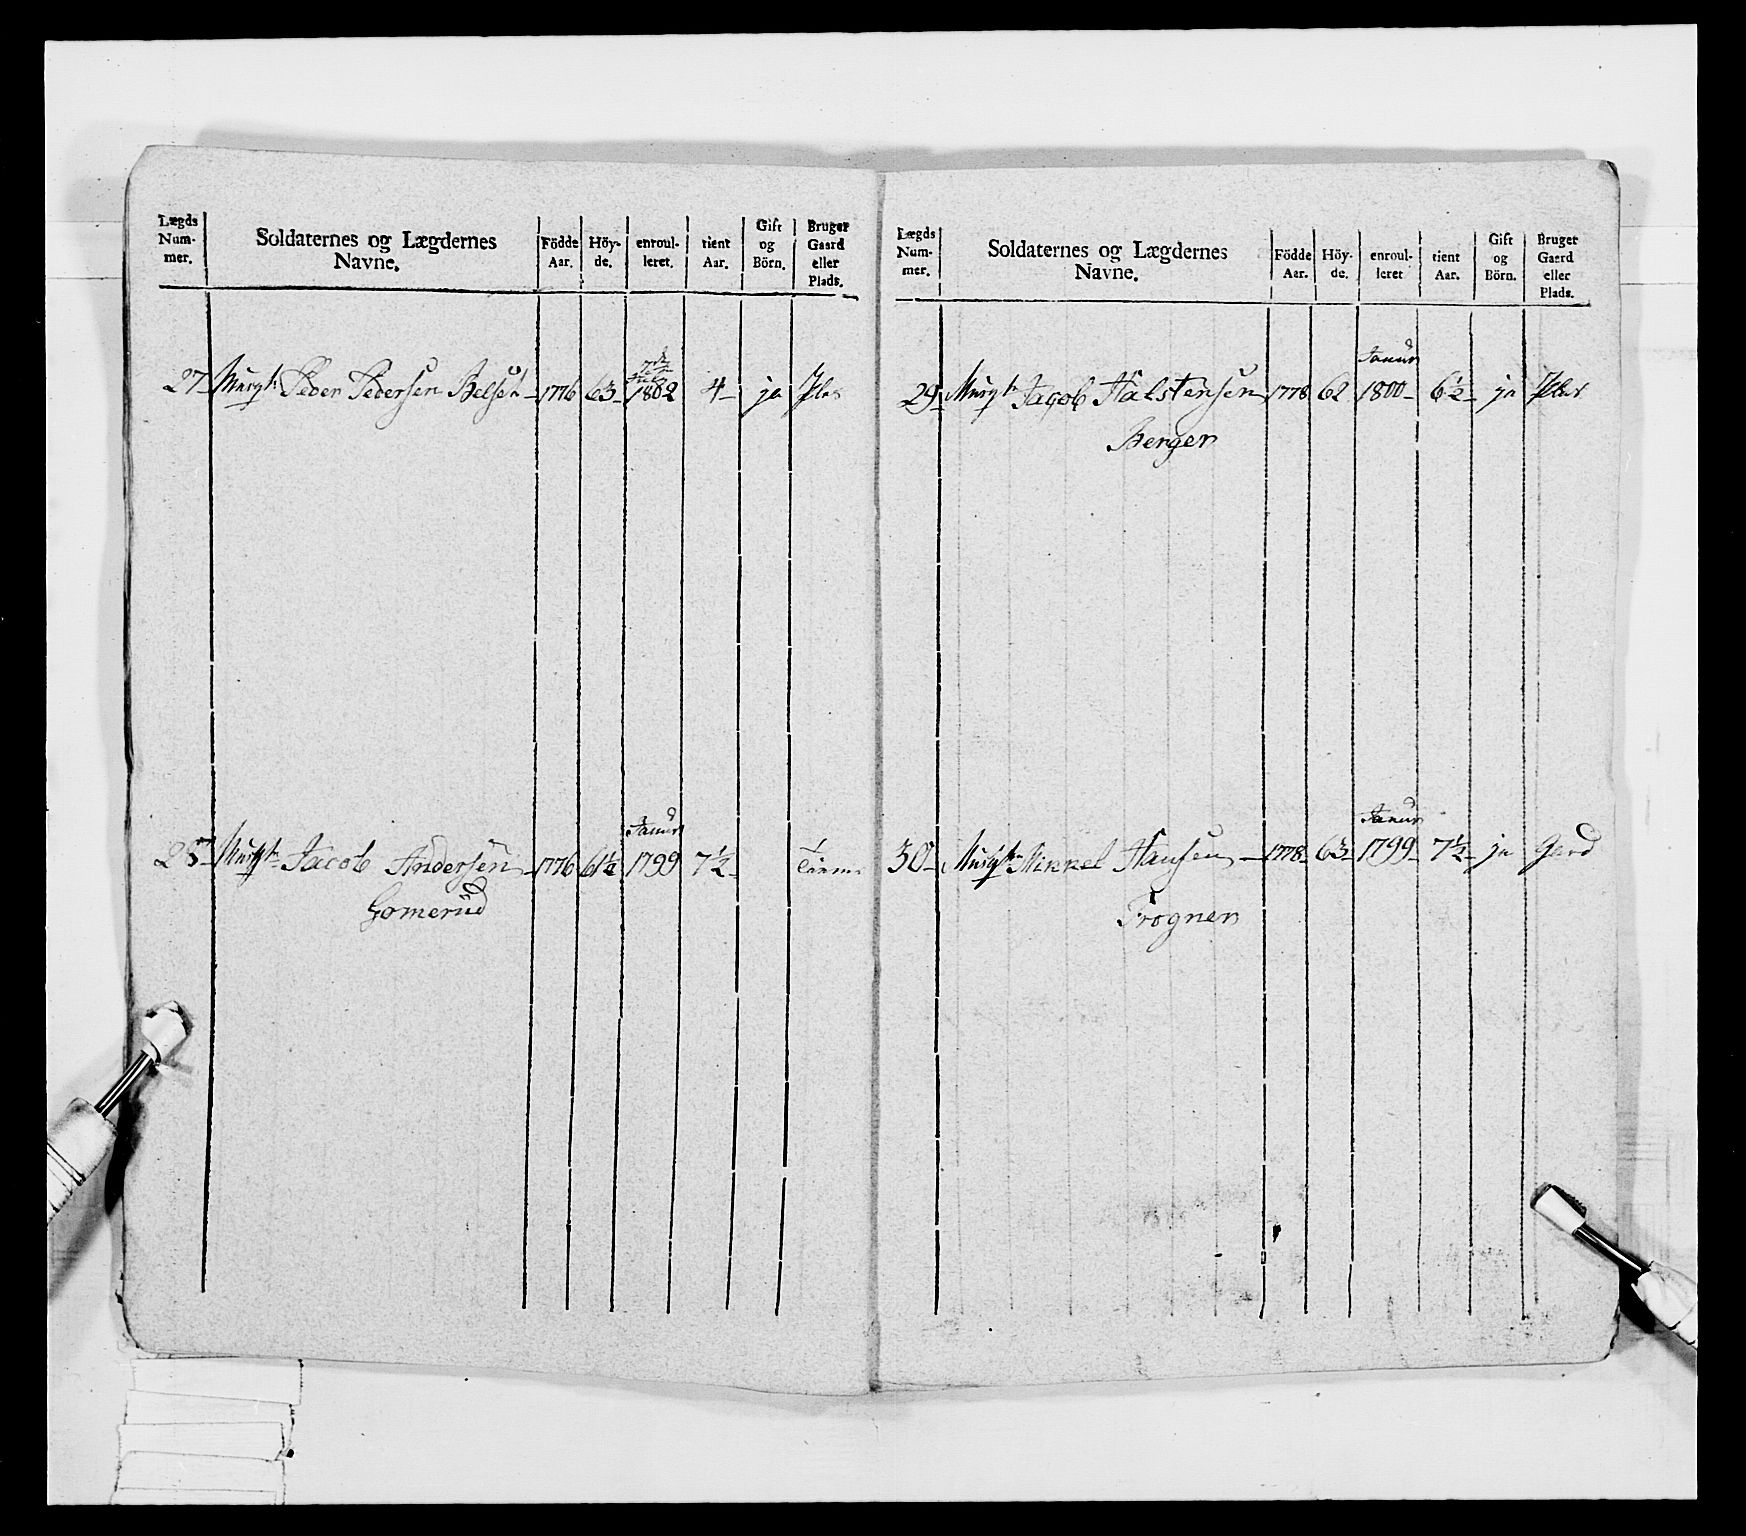 Lægds Num- mer.
Soldaternes og Lægdernes Navne.
Födde Aar.
Höy- de.
enroul- leret.
tient Aar.
Gift og Börn.
Bruger Gaard eller Plads.
27 Musqt: Peder Pedersen Belset 1776 63 1802 4 ja Plas
Janur
28 Musqt: Jacob Andersen 1776 61½ 1799 7½
Gomerud
Lægds Num- mer.
Soldaternes og Lægdernes Navne.
Födde Aar.
Höy- de.
enroul- leret
tient Aar.
Gift og Börn.
Bruget Gaerd eller Plads.
Janur
29 Musqt: Jaqob Halstensen 1778 62 1800 6½ ja Plas
Berger
Janur
30 Musqt: Mikkel Hansen 1778 63 1799 7½ ja Gard
Frogner